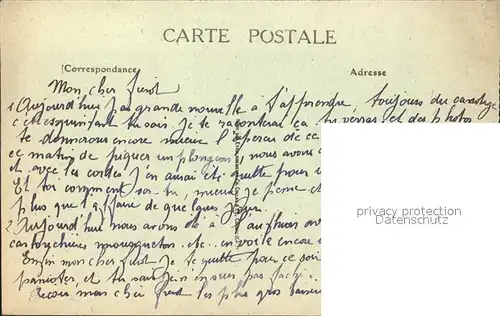 CARTE POSTALE
Correspondance
Adresse
Mon cher
1 Aujourd'hui pas grande nouvelle à t'apprendre, toujours du
c'est esquintant tu sais je te raconterai ça tu verras et des photos
te donneront encore mieux l'aperçu de ce
ce matin de piquer un plongeon, nous avons
et avec les cordes j'en aurai été quitte pour
Et toi comment vas-tu, mieux je pense et
plus que l'affaire de quelques jours
2 Aujourd'hui nous avons été à
cartouchières mousqueton. etc. en voilà encore
Enfin mon cher je te quitte pour ce soir
et tu sais j'en suis pas faché.
Reçois mon cher les plus gros baisers
privacy protection
Datenschutz